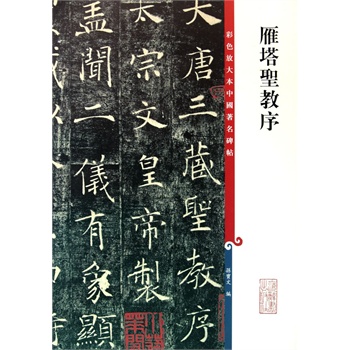 雁塔聖教序
彩色放大本中國著名碑帖
孫寶文 編
大唐三藏聖教序
太宗文皇帝製
蓋聞二儀有象顯